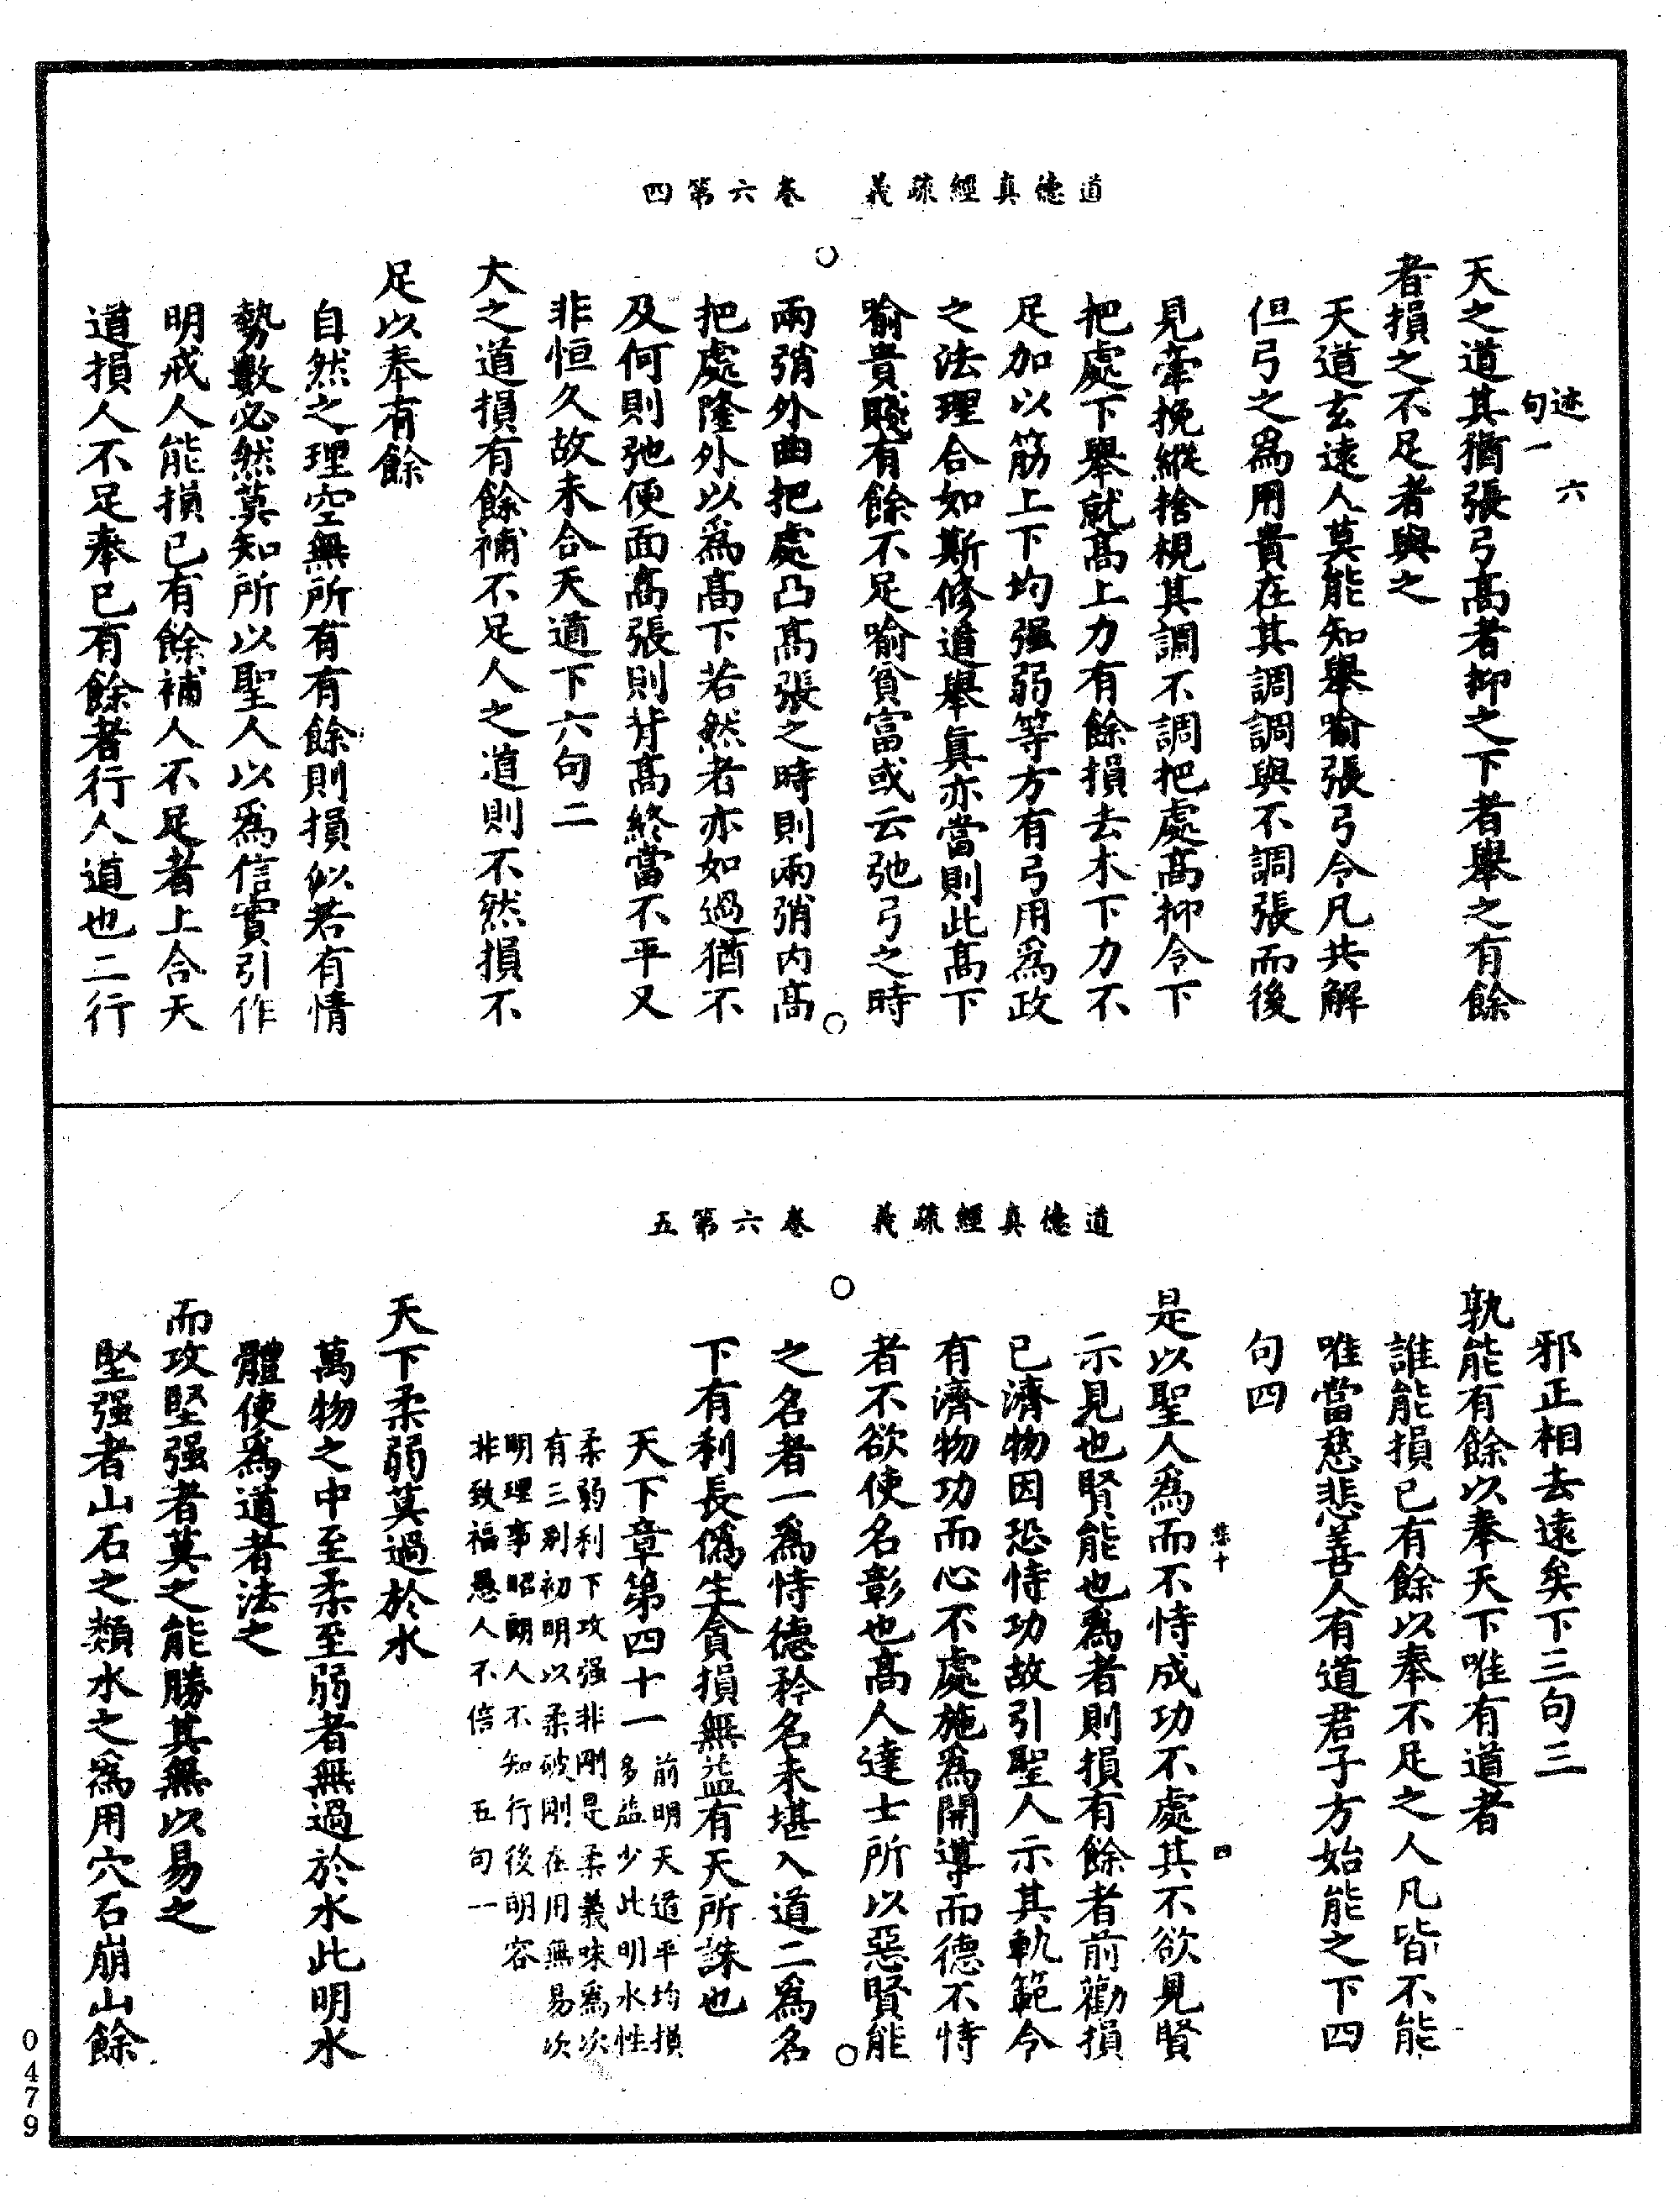 道德真經疏義　卷六第四
迹六
句一
天之道其猶張弓高者抑之下者舉之有餘
者損之不足者與之
天道玄遠人莫能知舉喻張弓令凡共解
但弓之為用貴在其調調與不調張而後
見牽挽縱捨梘其調不調把處高抑令下
把處下舉就高上力有餘損去木下力不
足加以筋上下均强弱等方有弓用為政
之法理合如斯修道舉真亦當則此高下
喻貴賤有餘不足喻貧富或云弛弓之時
兩弰外曲把處凸高張之時則兩弰内高
把處隆外以為高下若然者亦如過猶不
及何則弛便面高張則背高終當不平又
非恒久故未合天道下六句二
天之道損有餘補不足人之道則不然損不
足以奉有餘
自然之理空無所有有餘則損似若有情
勢數必然莫知所以聖人以為信實引作
明戒人能損已有餘補人不足者上合天
道損人不足奉已有餘者行人道也二行
道德真經疏義　卷六第五
邪正相去遠矣下三句三
孰能有餘以奉天下唯有道者
誰能損已有餘以奉不足之人凡皆不能
唯當慈悲善人有道君子方始能之下四
句四
是以聖人為而不恃成功不處其不欲見賢
示見也賢能也為者則損有餘者前勸損
已濟物因恐恃功故引聖人示其軌範令
有濟物功而心不處施為開導而德不恃
者不欲使名彰也高人達士所以惡賢能
之名者一為恃德矜名未堪入道二為名
下有利長僞生貪損無益有天所誅也
天下章第四十一
前明天道平均損
多益少此明水性
柔弱利下攻强非剛是柔義味為次
有三别初明以柔破剛在用無易次
明理事昭朗人不知行後明容
非致福愚人不倍　五句一
天下柔弱莫過於水
萬物之中至柔至弱者無過於水此明水
體使為道者法之
而攻堅强者莫之能勝其無以易之
堅强者山石之類水之為用穴石崩山餘
0479